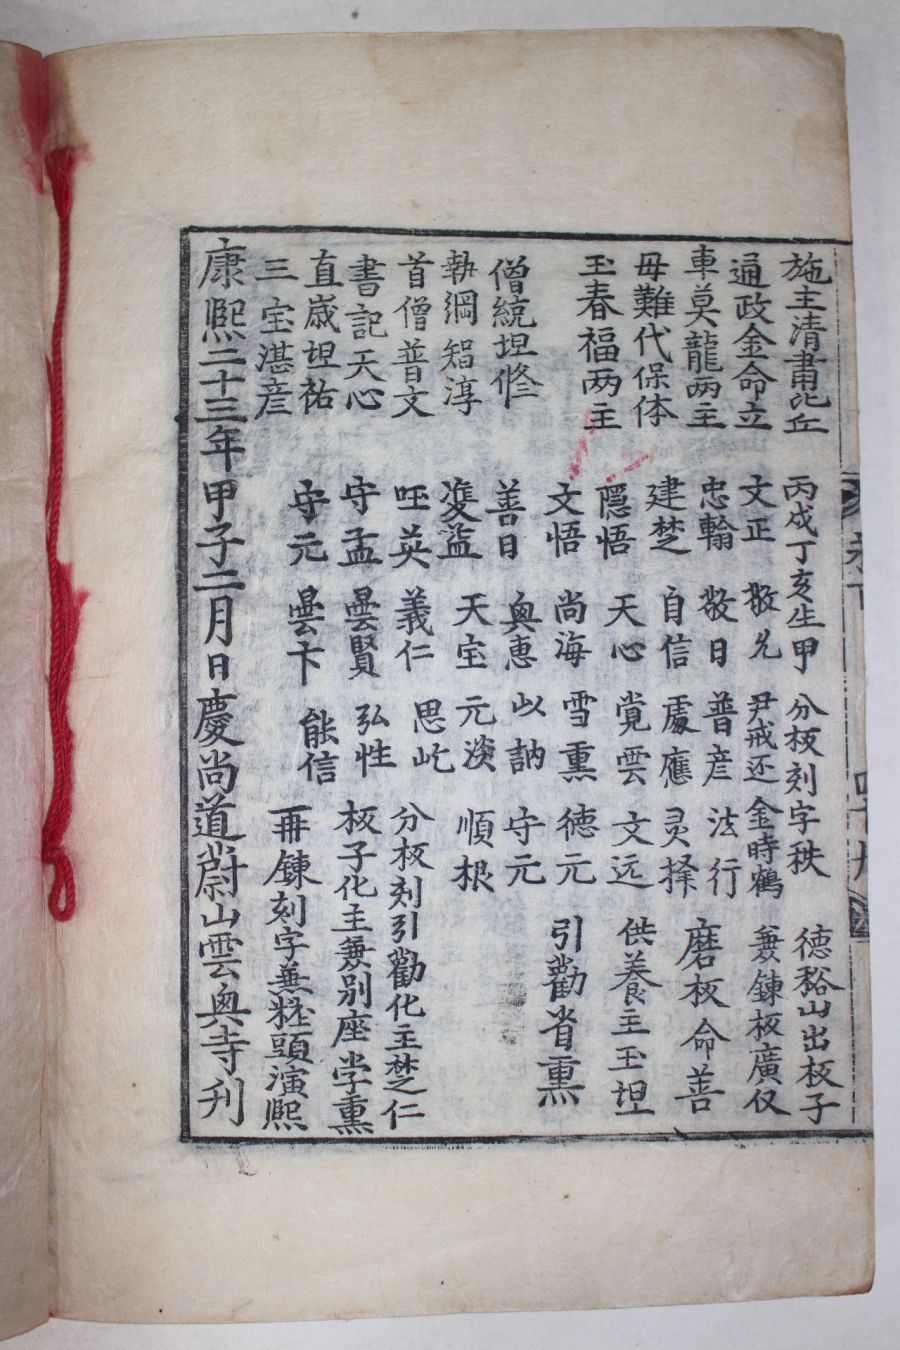 施主清肅比丘 丙戌丁亥生甲 分板刻字秩 德裕山出板子
通政金命立 文正 敬允 尹戒还 金時鶴 兼鍊板廣仅
車莫龍两主 忠輪 敬日 普彦 法行 磨板命善
毋難代保体 建楚 自信 處應 灵择 供養主玉坦
玉春福两主 隠悟 天心 覚雲 文远 引勸省熏
文悟 尚海 雪熏 德元
僧統坦修 善日 奥惠 以訥 守元
執綱智淳 天宝 元淡 順根
首僧普文 英 義仁 思屹 分板刻引勸化主楚仁
書記天心 守孟 曇賢 弘性 板子化主兼别座学熏
直嵗坦祐 守元 曇卞 能信 再鍊刻字兼頭演熙
三宝湛彦
康熙二十三年甲子二月日慶尚道蔚山雲奥寺刋